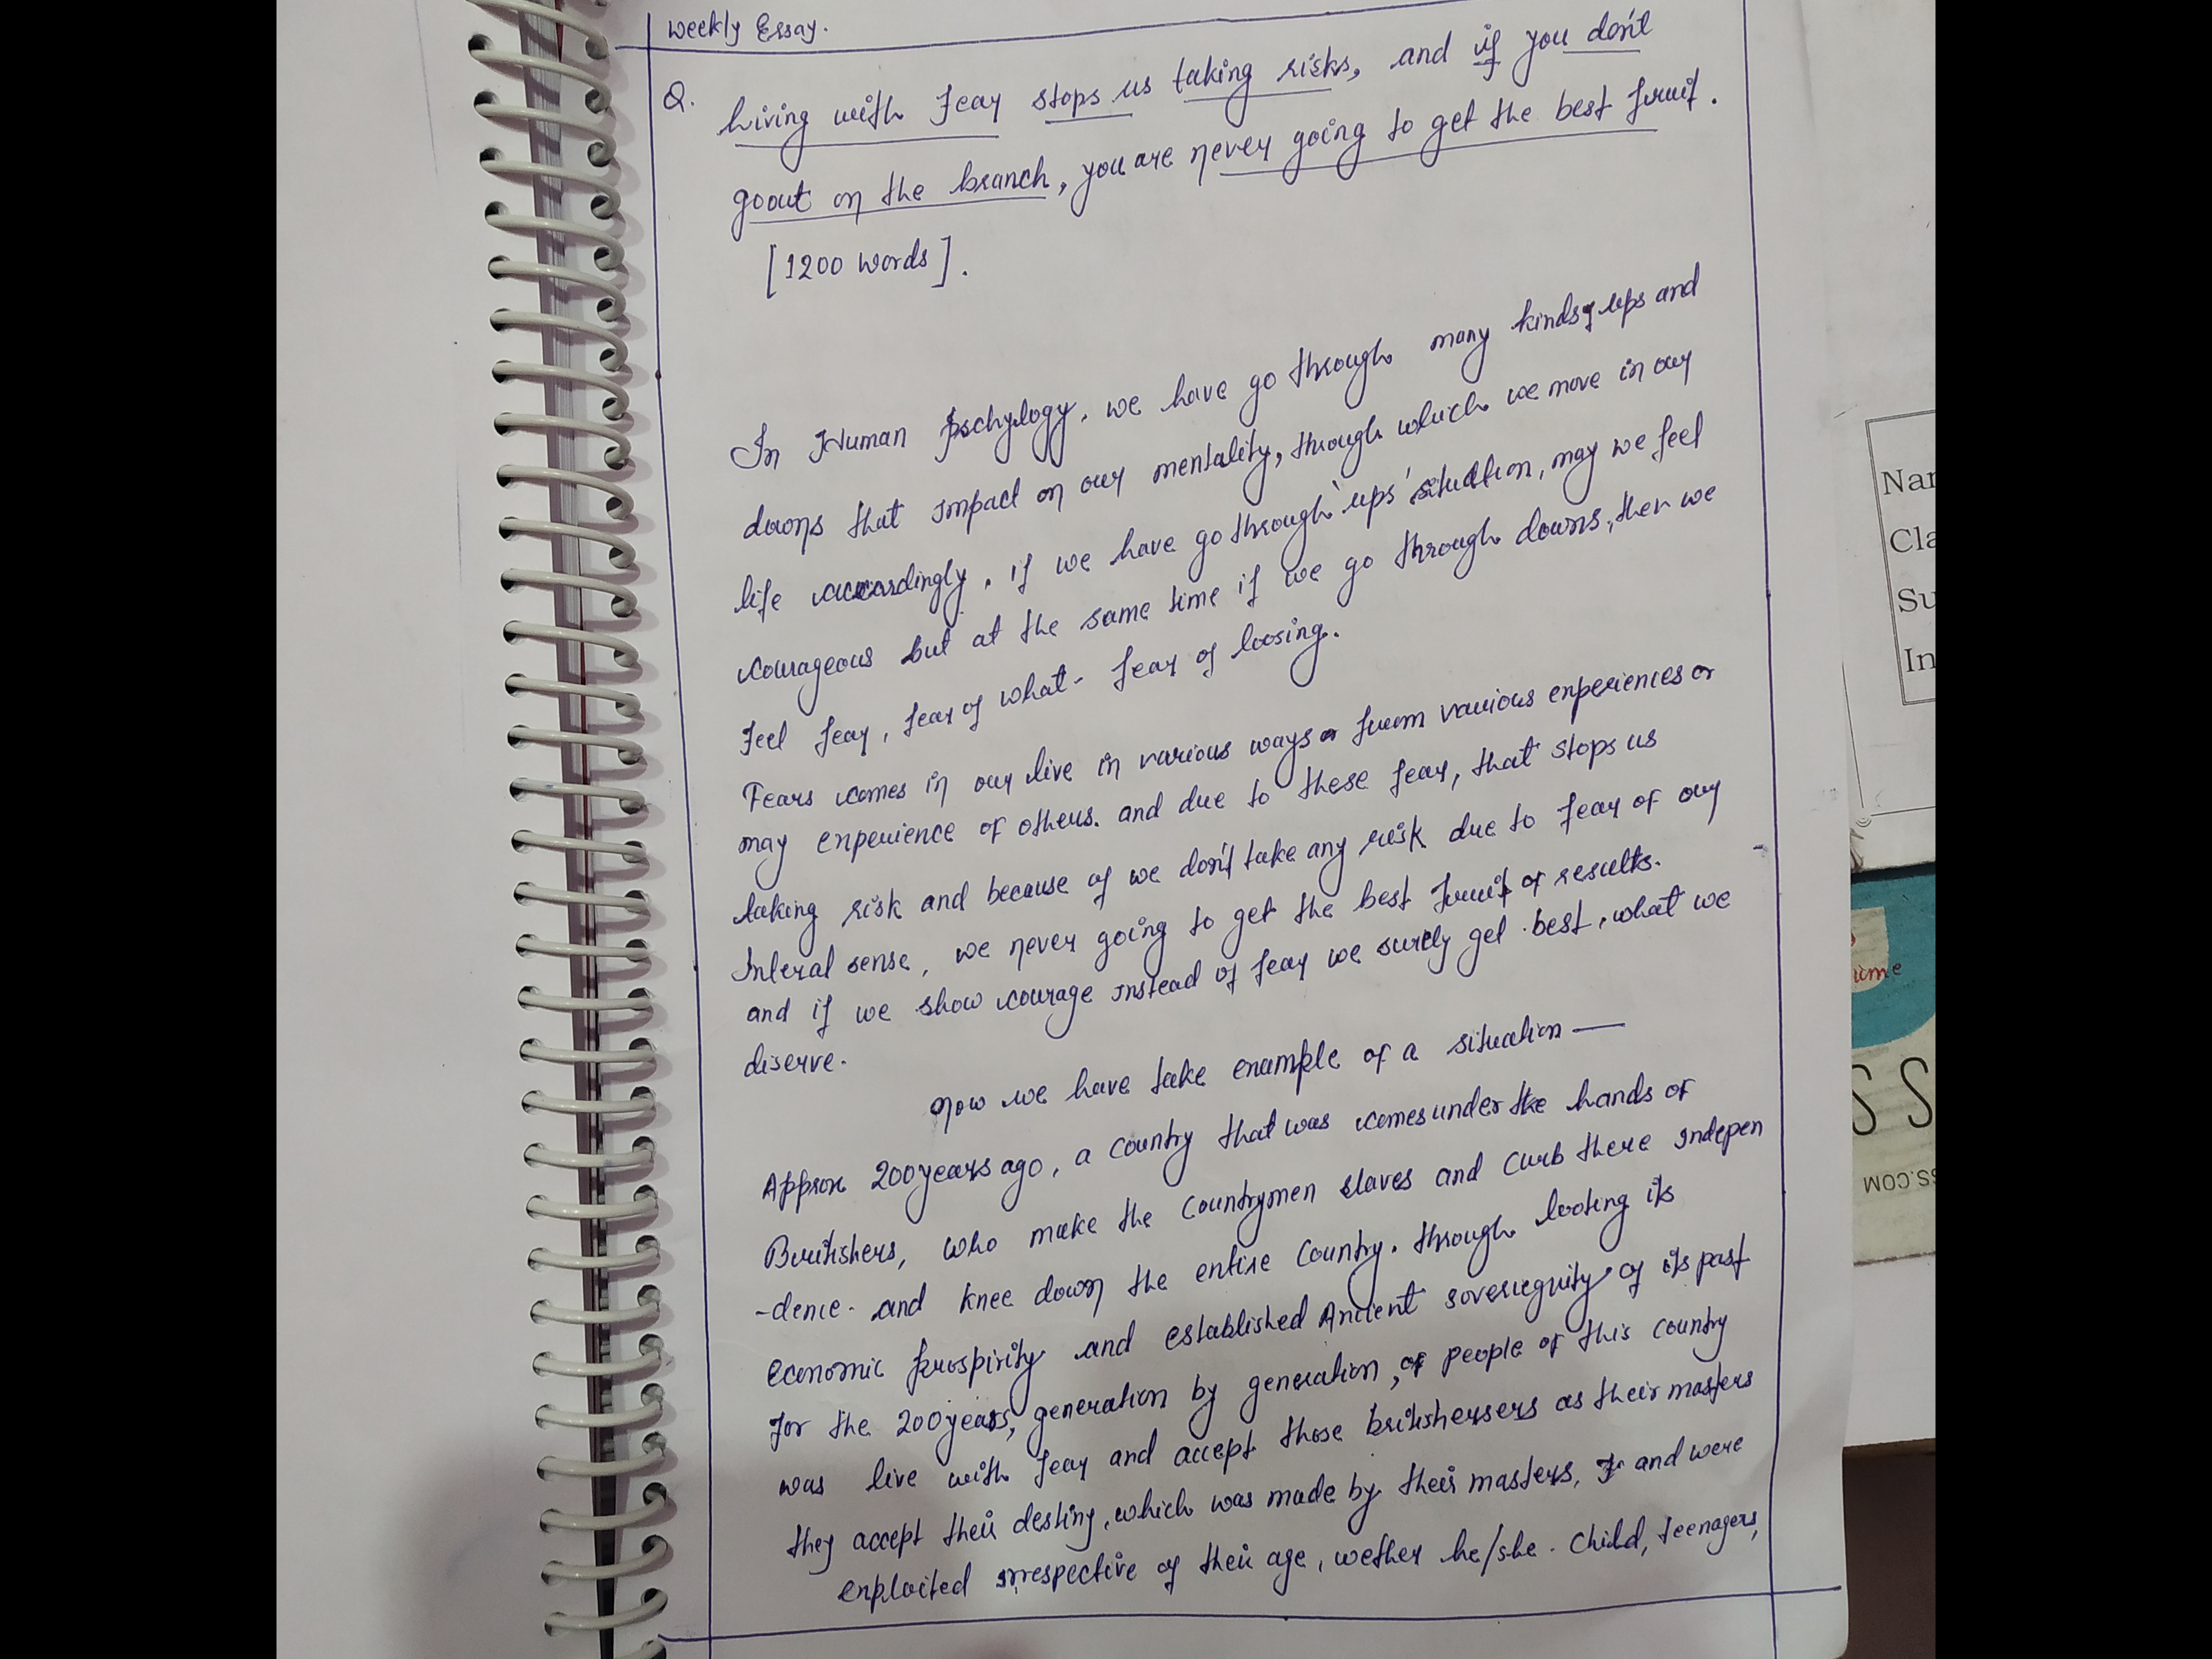 Weekly Essay.
Q. Living with Fear stops us taking risks, and if you don't
goout on the branch, you are never going to get the best fruit.
[1200 words].
In Human pschylogy, we have go through many kinds, ups and
downs that impact on our mentality, through which we move in our
life accordingly, if we have go through 'ups' situation, may we feel
courageous but at the same time if we go through downs, then we
Feel fear, fear of what - fear of loosing.
Fears comes in our live in various ways or from various experiences or
may experience of others. and due to these fear, that stops us
taking risk and because of we don't take any risk due to fear of our
Interal sense, we never going to get the best fruit or results.
and if we show courage instead of fear we surely get best, what we
diserve.
Now we have take example of a situation —
Approx 200 years ago, a country that was comes under the hands of
Buritishers, who make the countrymen slaves and curb there indepen
-dence. and knee down the entire country. through looting its
economic prospirity and established Ancient soveriegnity of its past
For the 200 years, generation by generation, of people of this country
was live with fear and accept those britishersers as their masters
they accept their destiny, which was made by their masters, and were
exploited irrespective of their age, wether he/she. child, teenagers,
Nar
Cla
Su
In
ime
SS
SS.COM